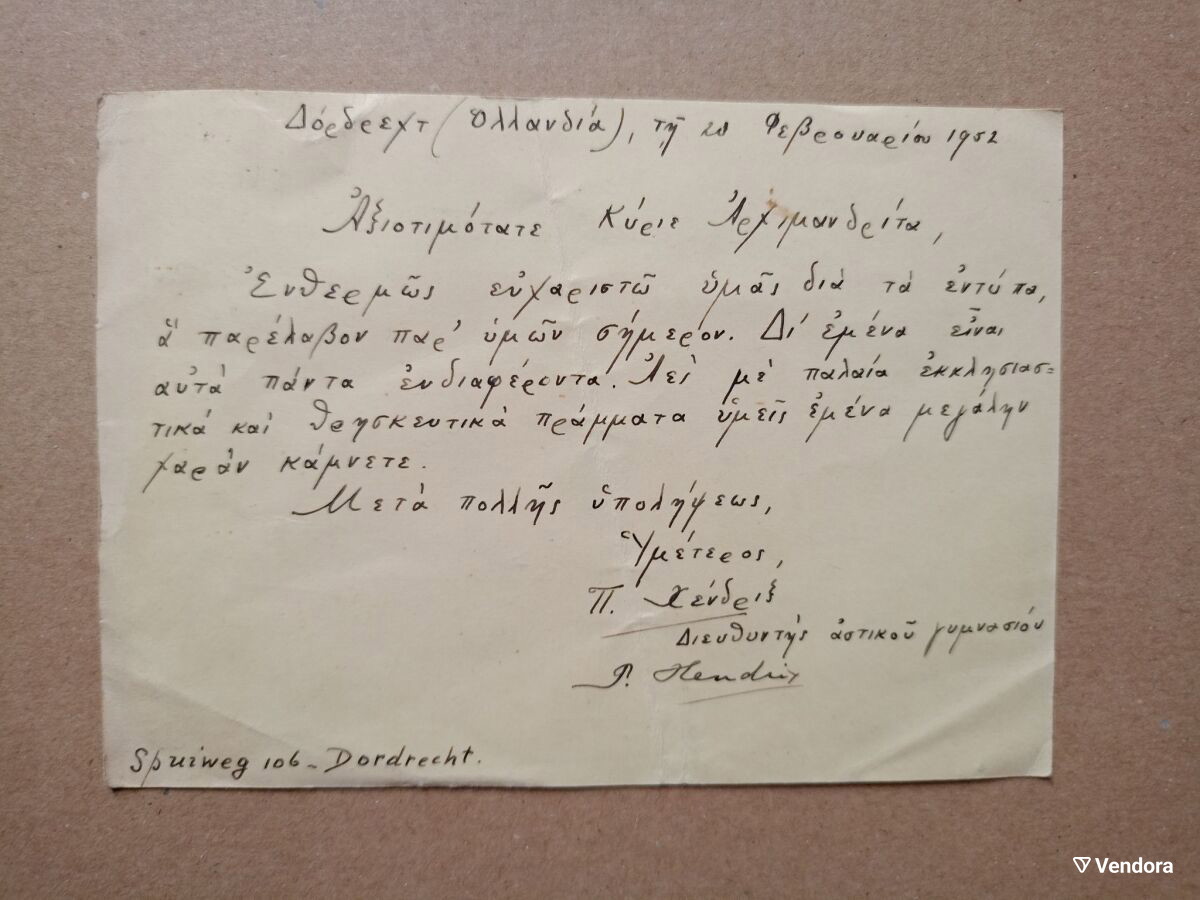 Δόρδρεχτ (Ὁλλανδία), τῇ 20 Φεβρουαρίου 1952
Ἀξιοτιμότατε Κύριε Ἀρχιμανδρίτα,
Ἐνθερμῶς εὐχαριστῶ ὑμᾶς διὰ τὰ ἐντύπα,
ἃ παρέλαβον παρ' ὑμῶν σήμερον. Δι' ἐμένα εἶναι
αὐτὰ πάντα ἐνδιαφέροντα. Ἀεὶ μὲ παλαία ἐκκλησιασ=
τικά καὶ θρησκευτικὰ πράμματα ὑμεῖς ἐμένα μεγάλην
χαρὰν κάμνετε.
Μετὰ πολλῆς ὑπολήψεως,
Ὑμέτερος,
Π. Χένδριξ
Διευθυντὴς ἀστικοῦ γυμνασιόυ
P. Hendrix
Spuiweg 106 - Dordrecht.
Vendora